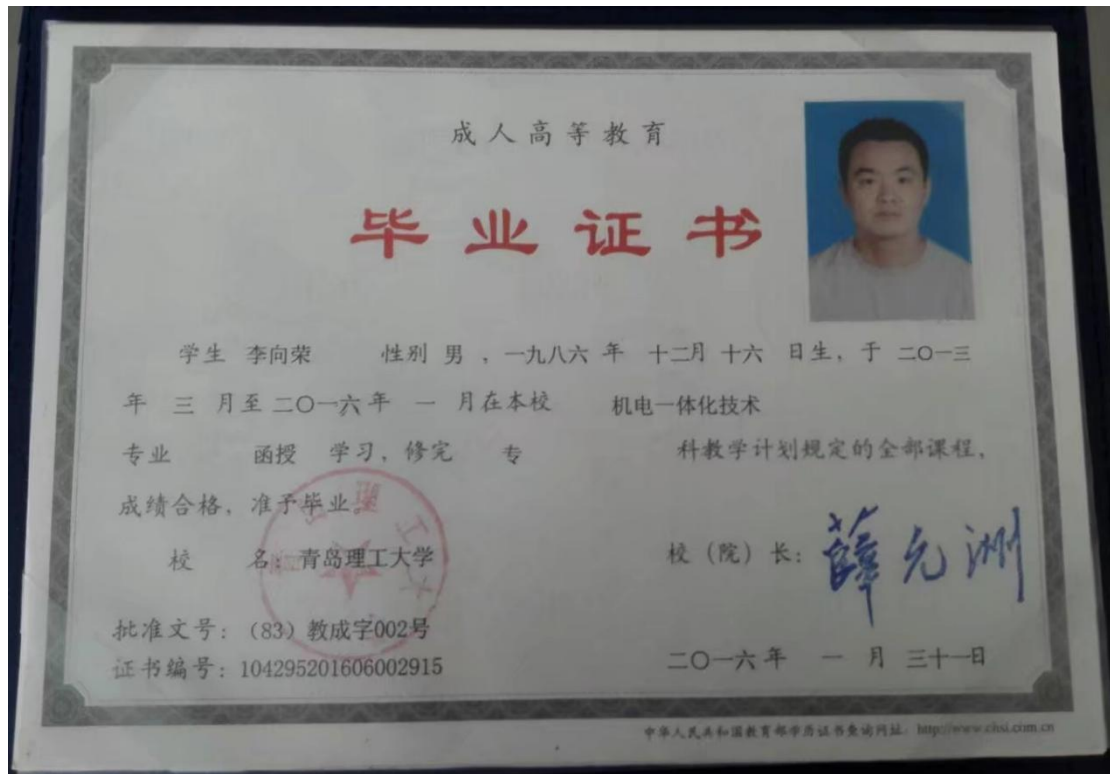 成人高等教育
毕业证书
学生 李向荣 性别 男 ，一九八六 年 十二月 十六 日生，于 二〇一三
年 三 月至 二〇一六 年 一 月在本校 机电一体化技术
专业 函授 学习，修完 专 科教学计划规定的全部课程，
成绩合格，准予毕业。
校 名：青岛理工大学 校（院）长：薛允洲
批准文号：（83）教成字002号
证书编号：104295201606002915 二〇一六 年 一 月 三十一日
中华人民共和国教育部学历证书查询网址：http://www.chsi.com.cn